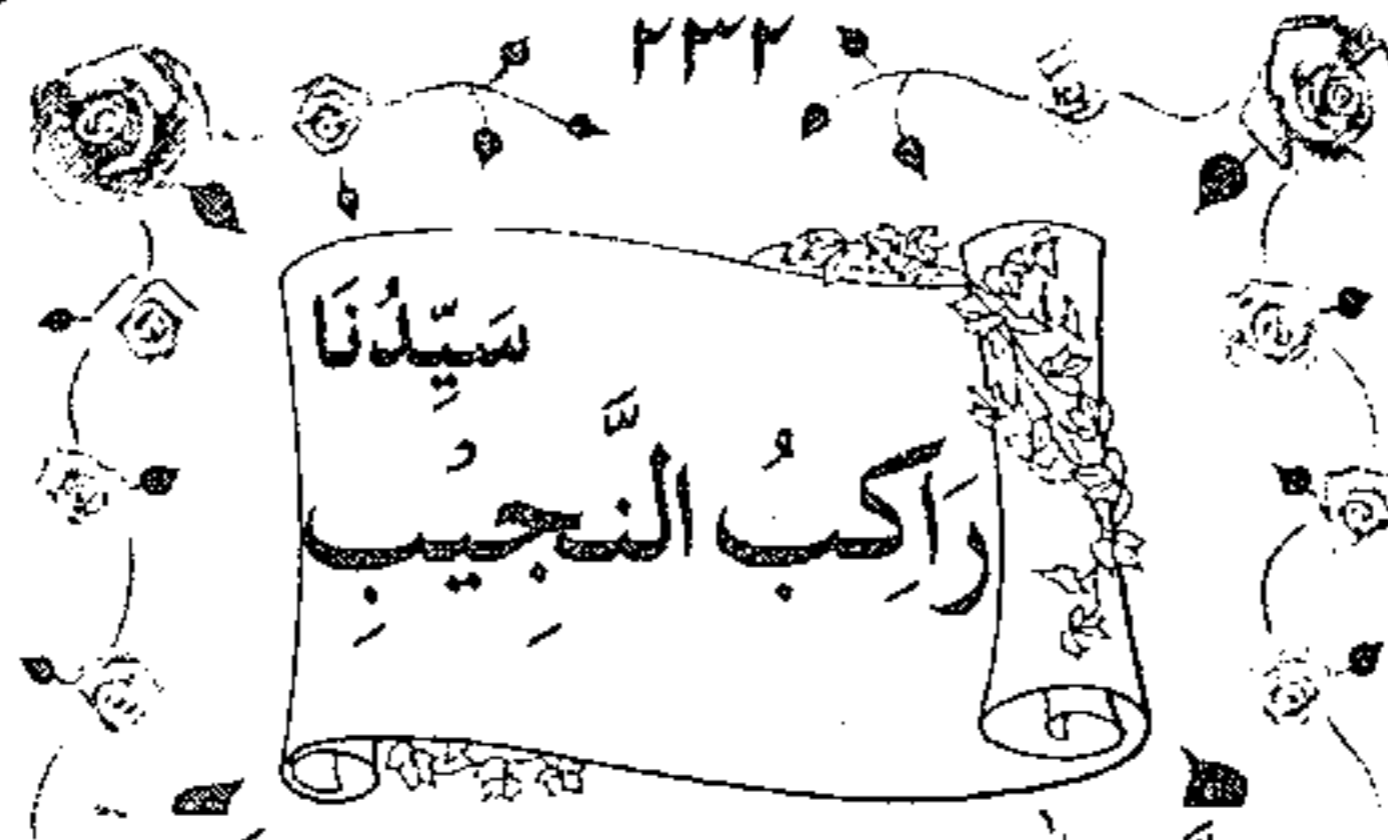 ٢٣٢
سَيِّدُنَا
رَاكِبُ النَّجِيبِ